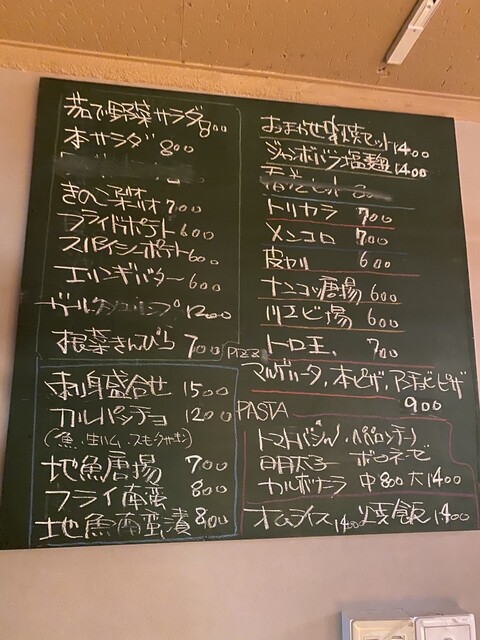 茹で野菜サラダ 800
本サラダ 800
きのこ 700
フライドポテト 600
スパイシーポテト 600
エリンギバター 600
1200
根菜きんぴら 700
刺身盛合せ 1500
カルパッチョ 1200
(魚、生ハム、スモークサーモン)
地魚唐揚 700
フライ南蛮 800
地魚南蛮漬 800
おまかせ串焼セット 1400
ジャンボバラ塩麹 1400
トリカラ 700
メンコロ 700
皮セル 600
ナンコツ唐揚 600
川エビ揚 600
トロ玉 700
PIZZA
マルゲリータ、本ピザ、アンチョビピザ
900
PASTA
トマトバジル、ペペロンチーノ
明太子 ボロネーゼ
カルボナーラ 中800 大1400
オムライス 1400 焼飯 1400